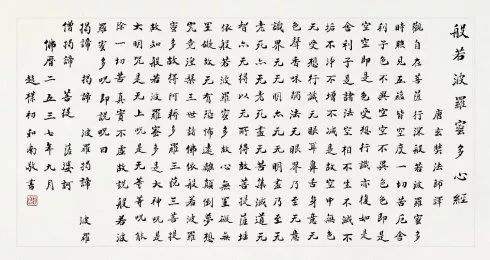 般若波羅蜜多心經
唐玄奘法師譯
觀自在菩薩行深般若波羅蜜多
時照見五蘊皆空度一切苦厄舍
利子色不異空空不異色色即是
空空即是色受想行識亦復如是
舍利子是諸法空相不生不滅不
垢不淨不增不減是故空中無色
无受想行識无眼耳鼻舌身意无
色聲香味觸法无眼界乃至无意
識界无无明亦无无明盡乃至无
老死亦无老死盡无苦集滅道无
智亦无得以无所得故菩提薩埵
依般若波羅蜜多故心無罣礙無
罣礙故无有恐怖遠離顛倒夢想
究竟涅槃三世諸佛依般若波羅
蜜多故得阿耨多羅三藐三菩提
故知般若波羅蜜多是大神咒是
大明咒是无上咒是无等等咒能
除一切苦真實不虛故說般若波
羅蜜多咒即說咒曰
揭諦 揭諦 波羅揭諦 波羅
僧揭諦 菩提 薩婆訶
佛曆二五三七年九月
趙樸初和南敬書